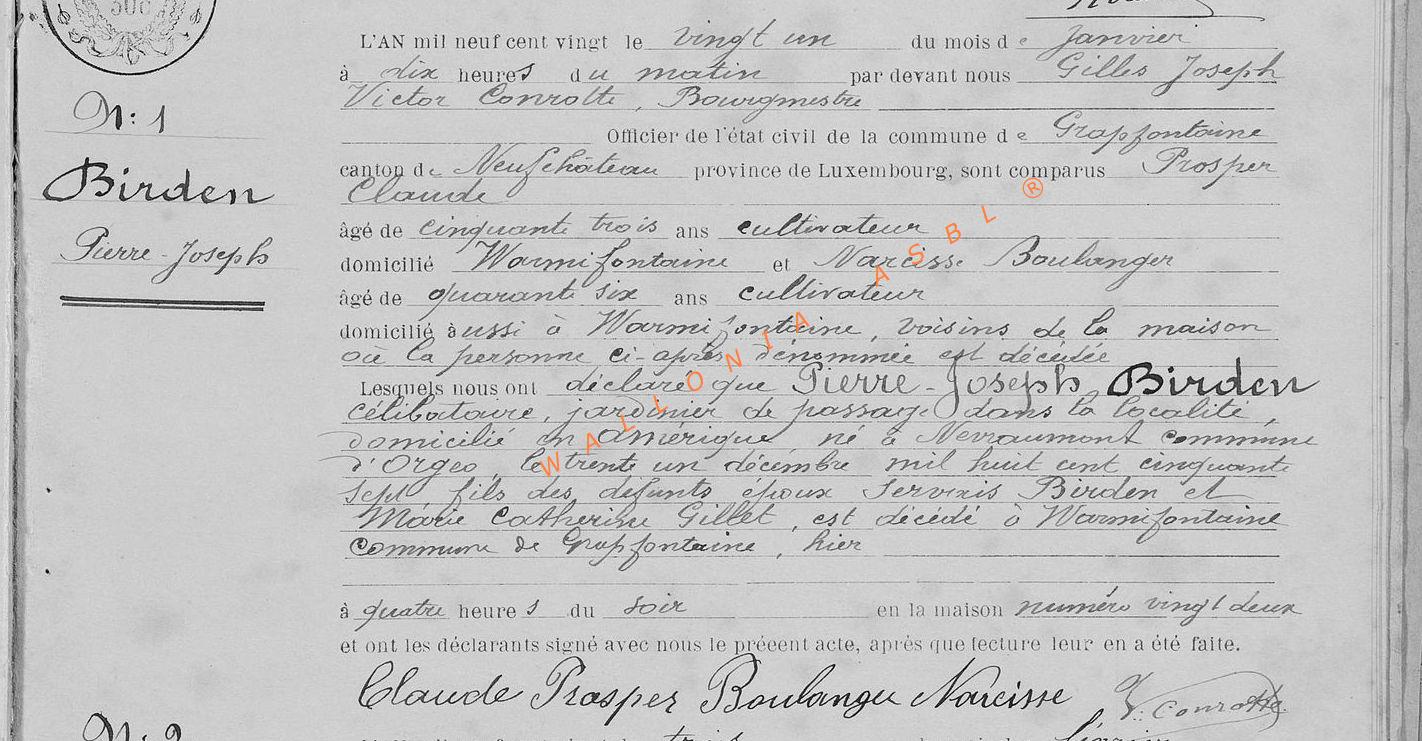 L'AN mil neuf cent vingt le vingt un du mois de Janvier
à dix heures du matin par devant nous Gilles Joseph
Victor Conrotte, Bourgmestre
N: 1
Officier de l'état civil de la commune de Grapfontaine
canton de Neufchâteau province de Luxembourg, sont comparus Prosper
Birden
Claude
âgé de cinquante trois ans cultivateur
Pierre-Joseph
domicilié Warmifontaine et Narcisse Boulanger
âgé de quarante six ans cultivateur
domicilié aussi à Warmifontaine, voisins de la maison
où la personne ci-après dénommée est décédée
Lesquels nous ont déclaré que Pierre-Joseph Birden
célibataire, jardinier de passage dans la localité,
domicilié en Amérique né à Nevraumont commune
d'Orgeo, le trente un décembre mil huit cent cinquante
sept, fils des défunts époux Servais Birden et
Marie Catherine Gillet, est décédé à Warmifontaine
commune de Grapfontaine, hier
à quatre heures du soir en la maison numéro vingt deux
et ont les déclarants signé avec nous le précent acte, après que lecture leur en a été faite.
Claude Prosper Boulanger Narcisse V: Conrotte
N: 2
WALLONIA ASBL ®